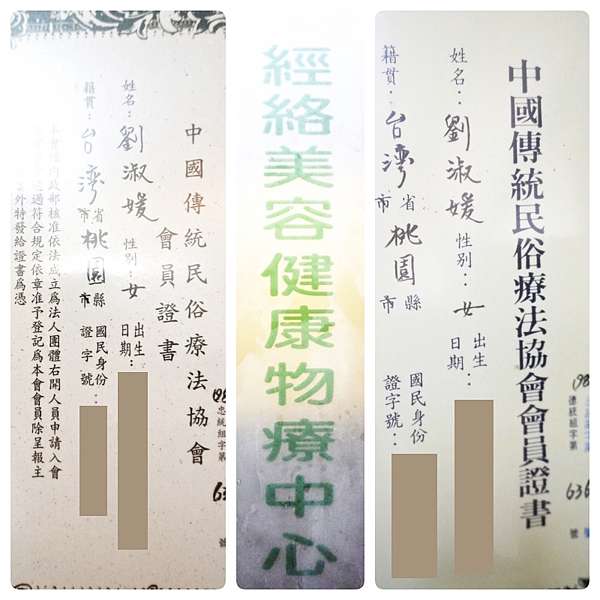 中國傳統民俗療法協會
會員證書
姓名：劉淑媛 性別：女 出生日期：
籍貫：台灣省市桃園縣市 國民身份證字號：
內政部核准依法成立為法人團體右開人員申請入會
過符合規定依章准予登記為本會會員除呈報主
外特發給證書為憑
統組字第 63 號
經絡美容健康物療中心
中國傳統民俗療法協會會員證書
姓名：劉淑媛 性別：女 出生日期：
籍貫：台灣省市桃園縣市 國民身份證字號：
統組字第 636 號